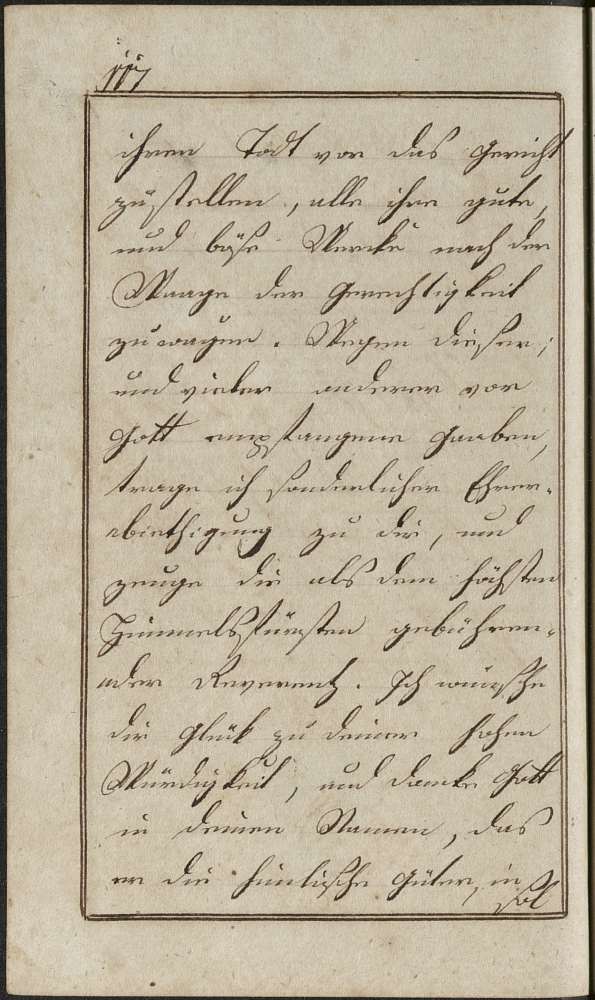 117
ihren Todt vor das Gericht
zu stellen, alle ihre gute,
und böse Wercke nach der
Waage der Gerechtigkeit
zu wagen. Wegen dieser,
und vieler anderer von
Gott empfangene Gaaben,
trage ich sonderlicher Ehrer-
biethigung zu dir, und
zeuge dir als dem höchsten
Himmelsfürsten gebühren-
der Reverentz. Ich wünsche
dir Glück zu deiner hohen
Würdigkeit, und dancke Gott
in deinen Namen, das
er dir himlische Güter, in
sol